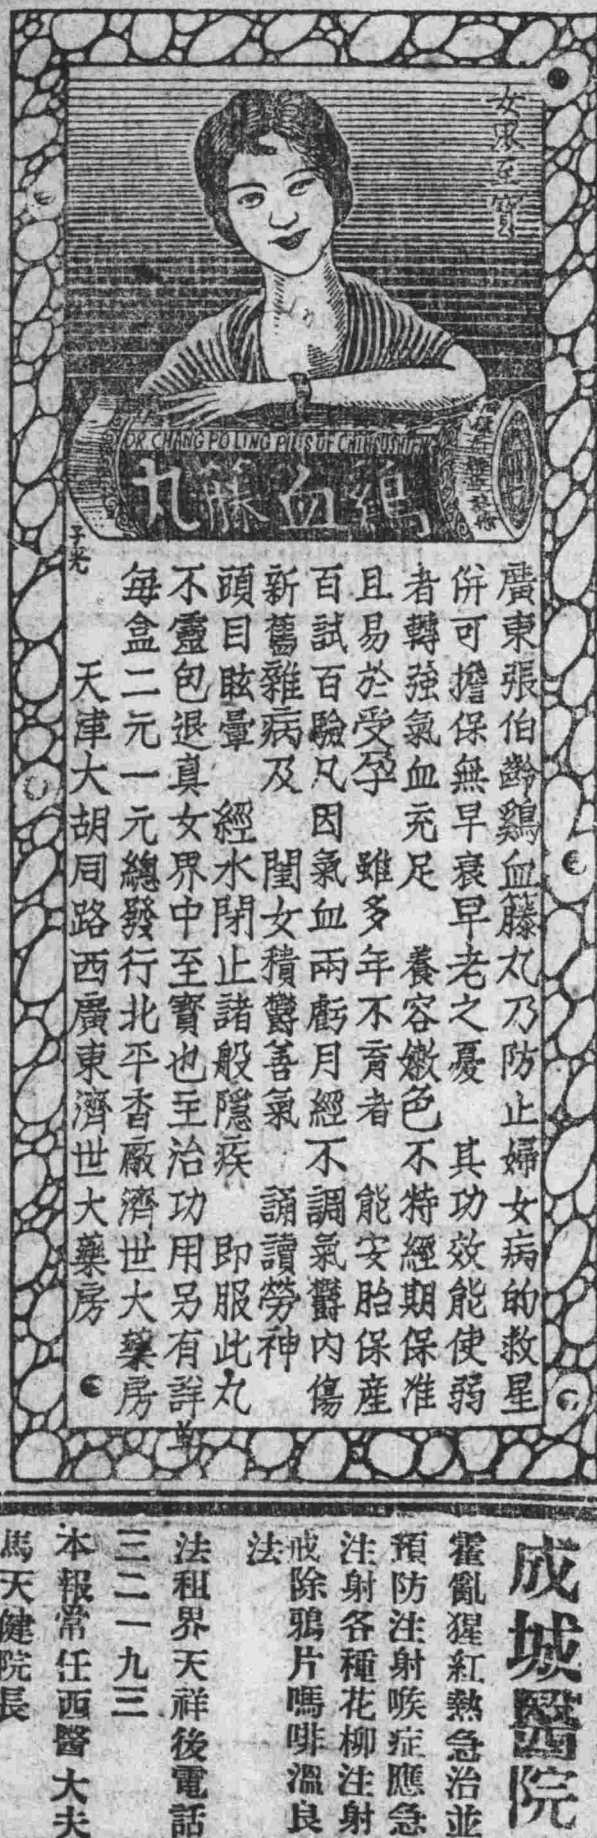 女界至寶
DR CHANG PO LING PILLS OF
鷄血籐丸
子光
廣東張伯齡鷄血籐丸乃防止婦女病的救星
併可擔保無早衰早老之憂　其功效能使弱
者轉強氣血充足　養容嫩色不特經期保准
且易於受孕　雖多年不育者　能安胎保産
百試百驗凡因氣血兩虧月經不調氣欝內傷
新舊雜病及　閨女積欝善氣　誦讀勞神
頭目眩暈　經水閉止諸般隱疾　即服此丸
不靈包退真女界中至寶也主治功用另有詳單
每盒二元一元總發行北平香廠濟世大藥房
天津大胡同路西廣東濟世大藥房
成城醫院
霍亂猩紅熱急治並
預防注射喉症應急
注射各種花柳注射
戒除鴉片嗎啡溫良
法
法租界天祥後電話
三二一九三
本報常任西醫大夫
馬天健院長